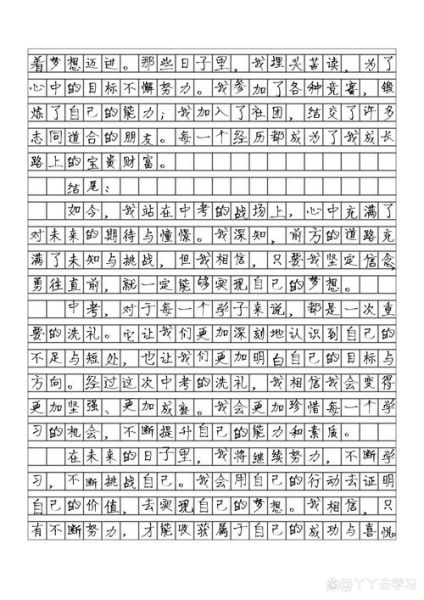 着梦想迈进。那些日子里，我埋头苦读，为了
心中的目标不懈努力。我参加了各种竞赛，锻
炼了自己的能力；我加入了社团，结交了许多
志同道合的朋友。每一个经历都成为了我成长
路上的宝贵财富。
结尾：
如今，我站在中考的战场上，心中充满了
对未来的期待与憧憬。我深知，前方的道路充
满了未知与挑战，但我相信，只要我坚定信念，
勇往直前，就一定能够实现自己的梦想。
中考，对于每一个学子来说，都是一次重
要的洗礼。它让我们更加深刻地认识到自己的
不足与短处，也让我们更加明白自己的目标与
方向。经过这次中考的洗礼，我相信我会变得
更加坚强、更加成熟。我会更加珍惜每一个学
习的机会，不断提升自己的能力和素质。
在未来的日子里，我将继续努力，不断学
习，不断挑战自己。我会用自己的行动去证明
自己的价值，去实现自己的梦想。我相信，只
有不断努力，才能收获属于自己的成功与喜悦。
@丫丫去学习